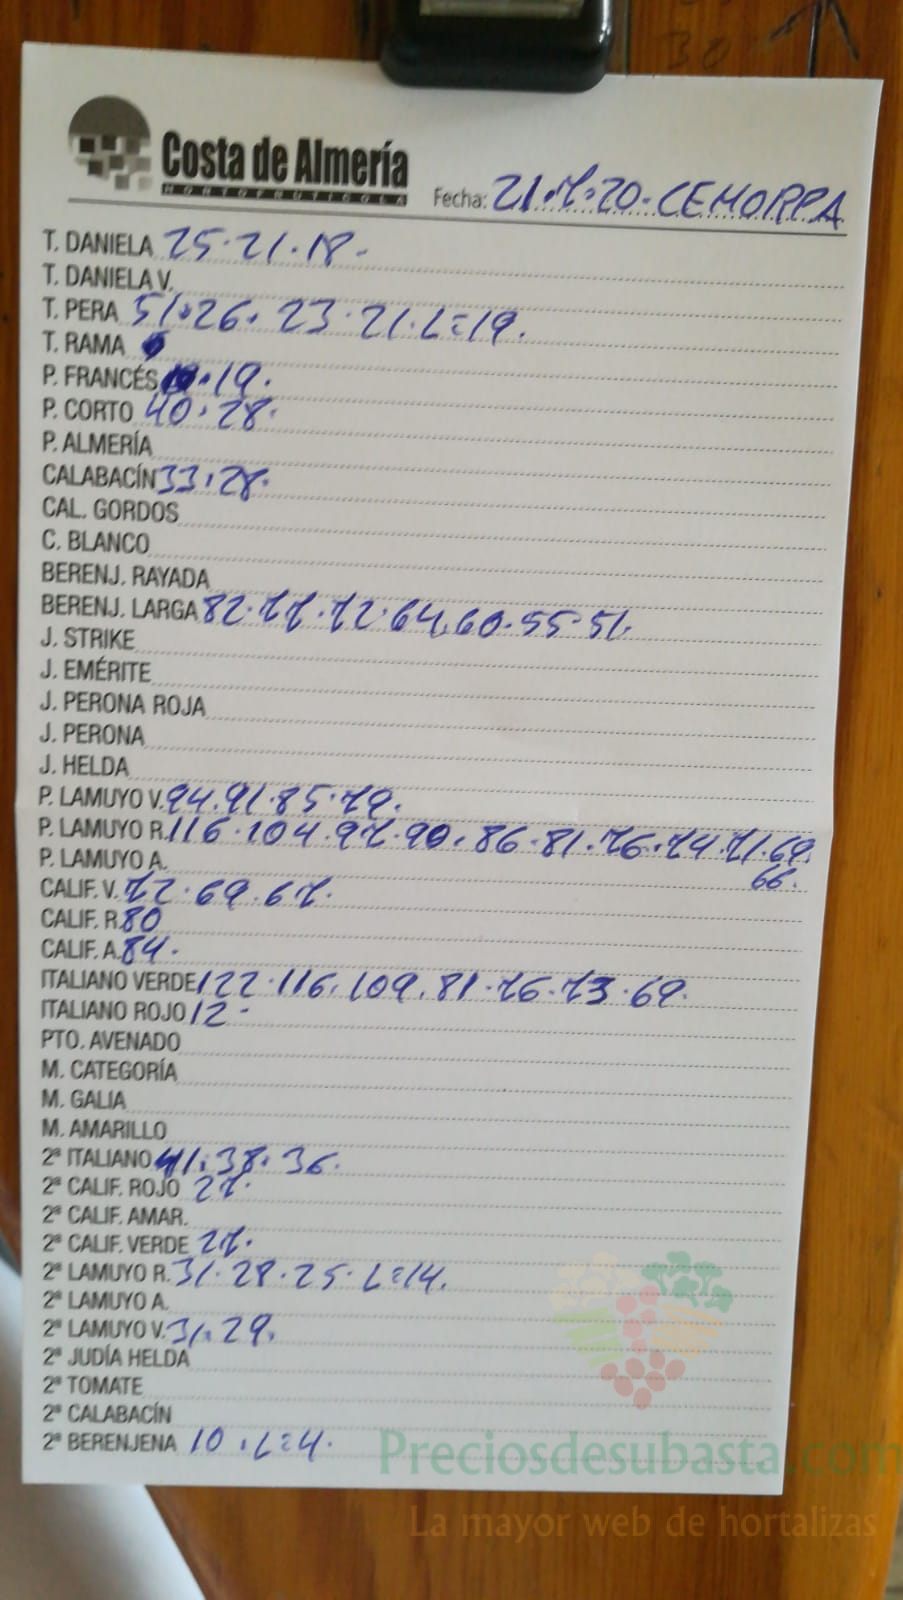 Costa de Almería
HORTOFRUTICOLA
Fecha: 21.7.20. CEHORPA
T. DANIELA 25.21.18.
T. DANIELA V.
T. PERA 51.26. 23.21.L=19.
T. RAMA
P. FRANCÉS .19.
P. CORTO 40.28.
P. ALMERÍA
CALABACÍN 33.28.
CAL. GORDOS
C. BLANCO
BERENJ. RAYADA
BERENJ. LARGA 82.77.72.64.60.55.51.
J. STRIKE
J. EMÉRITE
J. PERONA ROJA
J. PERONA
J. HELDA
P. LAMUYO V. 94.91.85.79.
P. LAMUYO R. 116.104.97.90.86.81.76.74.71.69.
66.
P. LAMUYO A.
CALIF. V. 72.69.67.
CALIF. R. 80
CALIF. A. 84.
ITALIANO VERDE 122.116.109.81.76.73.69.
ITALIANO ROJO 12.
PTO. AVENADO
M. CATEGORÍA
M. GALIA
M. AMARILLO
2ª ITALIANO 41.38.36.
2ª CALIF. ROJO 27.
2ª CALIF. AMAR.
2ª CALIF. VERDE 27.
2ª LAMUYO R. 31.28.25.L=14.
2ª LAMUYO A.
2ª LAMUYO V. 31.29.
2ª JUDÍA HELDA
2ª TOMATE
2ª CALABACÍN
2ª BERENJENA 10.L=4.
Preciosdesubasta.com
La mayor web de hortalizas